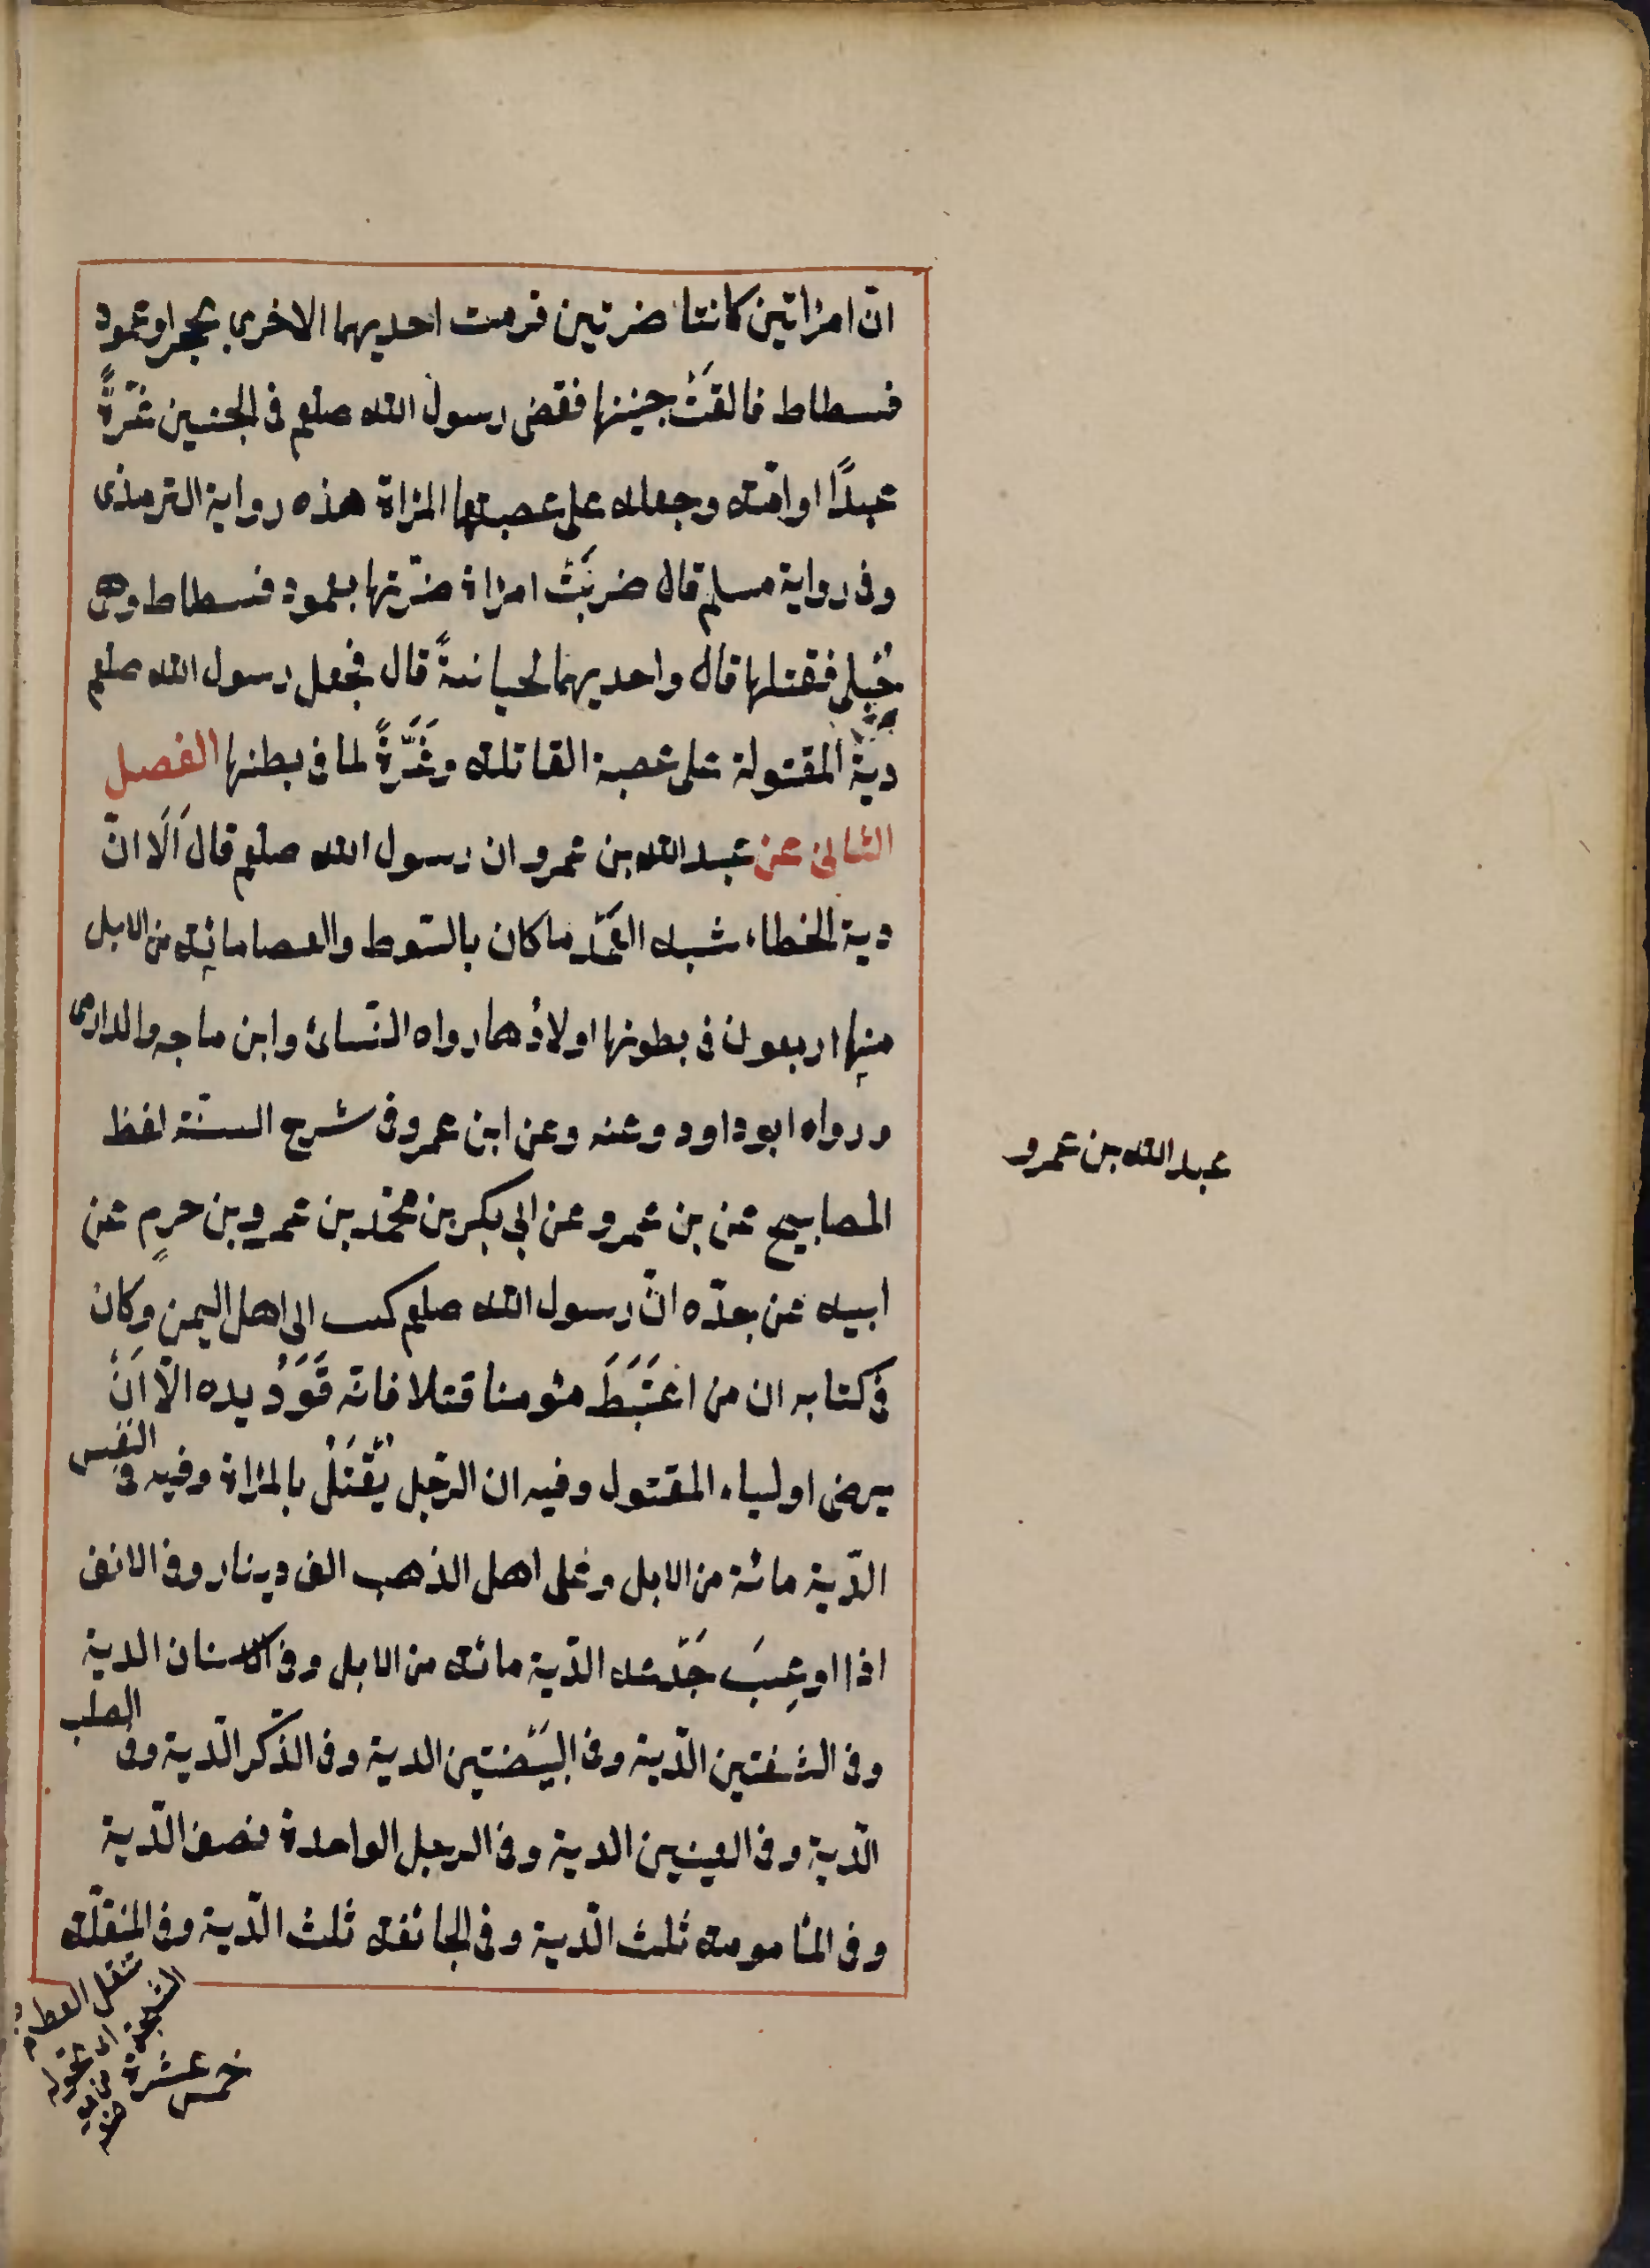 انّ امراتين كانتا ضرتين فرمت احديهما الاخرى بحجر او عمود
فسطاط فالقَتْ جنينها فقضى رسول الله صلعم فى الجنين غرّةً
عبدًا او امته وجعله على عصبتها المراة هذه رواية الترمذى
وفى رواية مسلم قال ضربَتْ امراة ضرّتها بعمود فسطاط وهى
حُبلى فقتلها قال واحديهما لحيانيةً قال فجعل رسول الله صلعم
دية المقتولة على عصبة القاتله وغَرَّةً لما فى بطنها الفصل
الثانى عن عبد الله بن عمرو ان رسول الله صلعم قال اَلَا انّ
دية الخطاء شبه العَمْد ما كان بالسّوط والعصا مائة من الابل
منها اربعون فى بطونها اولادُها رواه النّسائ وابن ماجه والدارمى
ورواه ابو داود وعنه وعن ابن عمر وفى شرح السنّة لفظ
المصابيح عن بن عمرو عن ابى بكر بن محمّد بن عمرو بن حرم عن
ابيه عن جدّه انّ رسول الله صلعم كتب الى اهل اليمن وكان
فى كتابه ان من اعْتَبَطَ مئومنا قتلا فانّه قَوَدُ يده الّا اَنْ
يرضى اولياء المقتول وفيه ان الرّجل يُقْتَلُ بالمراة وفيه فى النفس
الدّية مائة من الابل وعلى اهل الذهب الف دينار وفى الانف
اذا اوعِبَ جَدْعه الدّية مائة من الابل وفى الاسنان الدية
وفى الشفتين الدّية وفى البَيْضتين الدية وفى الذّكر الدّية وفى الصلب
الدّية وفى العينين الدية وفى الرجل الواحدة نصف الدّية
وفى المأمومة ثلث الدّية وفى الجائفة ثلث الدّية وفى المنقّلة
عبد الله بن عمرو
خمس عشرة
الشجة
تنقل العظام